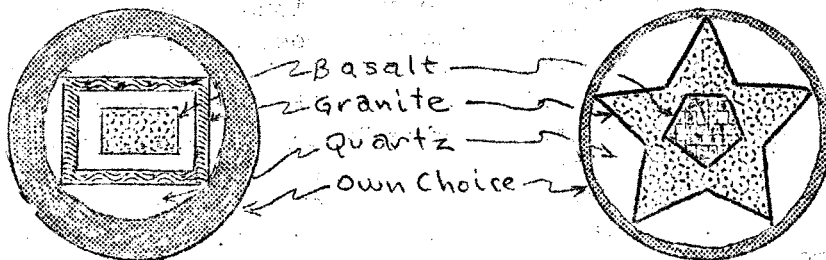 Basalt
Granite
Quartz
Own Choice